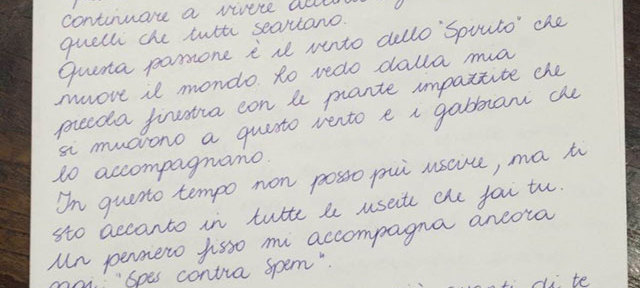 continuare a vivere accanto
quelli che tutti scartano.
Questa passione è il vento dello "Spirito" che
muove il mondo. Lo vedo dalla mia
piccola finestra con le piante impazzite che
si muovono a questo vento e i gabbiani che
lo accompagnano.
In questo tempo non posso più uscire, ma ti
sto accanto in tutte le uscite che fai tu.
Un pensiero fisso mi accompagna ancora
oggi "Spes contra Spem".
di te